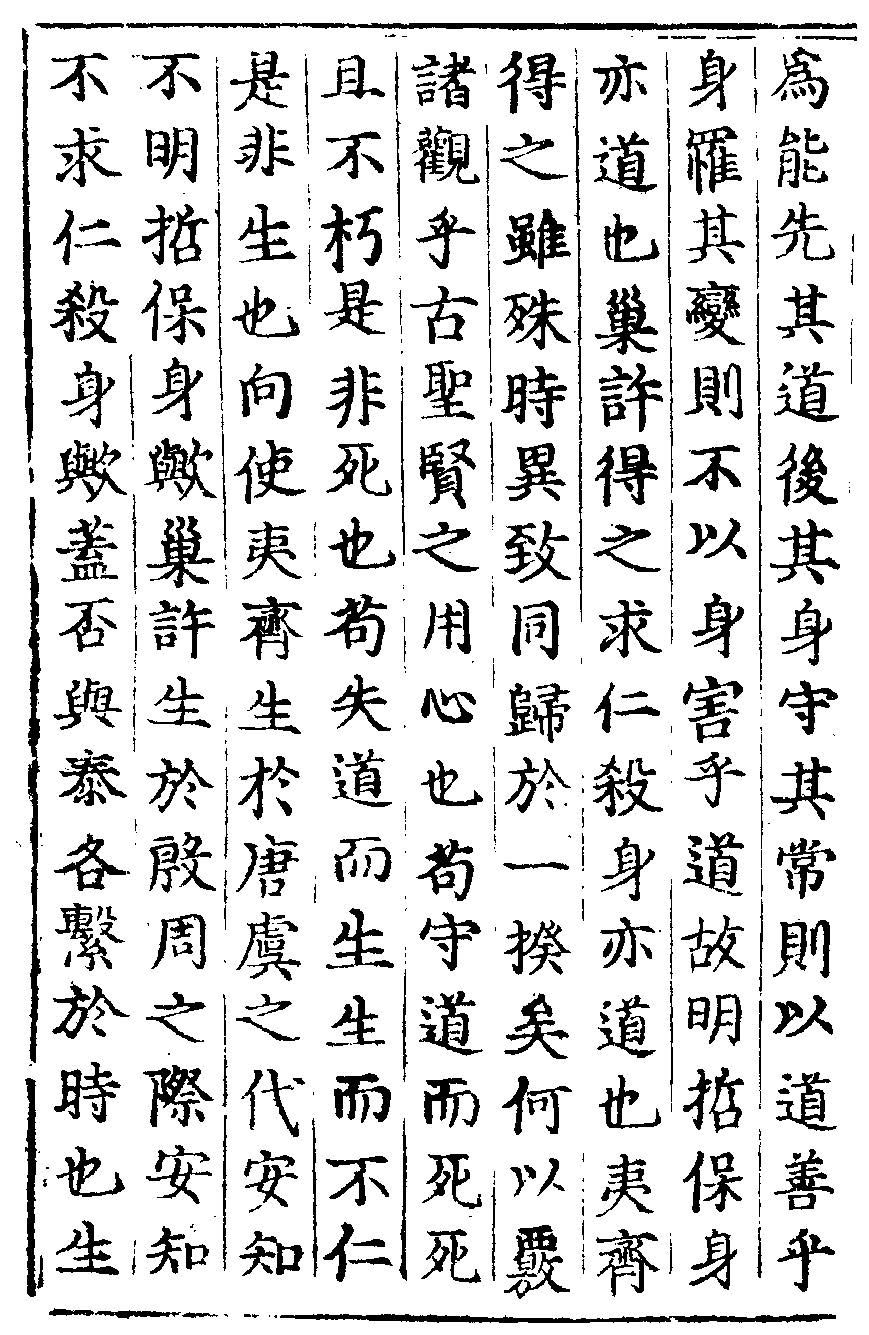 爲能先其道後其身守其常則以道善乎
身罹其變則不以身害乎道故明哲保身
亦道也巢許得之求仁殺身亦道也夷齊
得之雖殊時異致同歸於一揆矣何以覈
諸觀乎古聖賢之用心也苟守道而死死
且不朽是非死也苟失道而生生而不仁
是非生也向使夷齊生於唐虞之代安知
不明哲保身歟巢許生於殷周之際安知
不求仁殺身歟蓋否與泰各繫於時也生